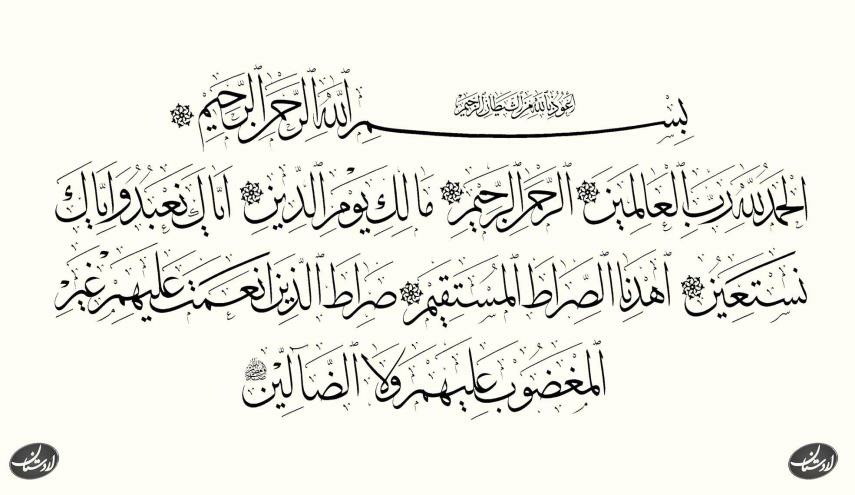 أعوذ بالله من الشيطان الرجيم
بِسْمِ اللَّهِ الرَّحْمَٰنِ الرَّحِيمِ
الْحَمْدُ لِلَّهِ رَبِّ الْعَالَمِينَ الرَّحْمَٰنِ الرَّحِيمِ مَالِكِ يَوْمِ الدِّينِ اِيَّاكَ نَعْبُدُ وَاِيَّاكَ
نَسْتَعِينُ اهْدِنَا الصِّرَاطَ الْمُسْتَقِيمَ صِرَاطَ الَّذِينَ اَنْعَمْتَ عَلَيْهِمْ غَيْرِ
الْمَغْضُوبِ عَلَيْهِمْ وَلَا الضَّالِّينَ
لادستان
لادستان